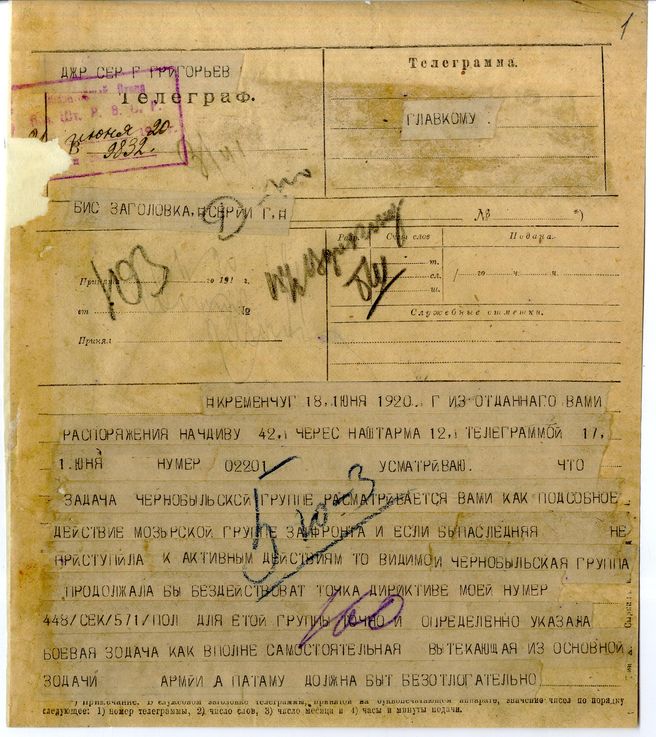 1
ДЖР СЕР Г ГРИГОРЬЕВ
Телеграмма.
Телеграф.
ГЛАВКОМУ .
июня 20
В 9832.
БИС ЗАГОЛОВКА, СЕРИИ Г,
№ *)
Счетъ словъ
Подача.
т.
сл.
ш.
/ го ч. м.
Служебныя отметки.
го 191 г.
от №
Принял
403
КРЕМЕНЧУГ 18, ІЮНЯ 1920.. Г ИЗ ОТДАННАГО ВАМИ
РАСПОРЯЖЕНИЯ НАЧДИВУ 42, ЧЕРЕС НАШТАРМА 12, ТЕЛЕГРАММОЙ 17,
1. ЮНЯ НУМЕР 02201 УСМАТРИВАЮ. ЧТО
ЗАДАЧА ЧЕРНОБЫЛЬСКОЙ ГРУППЕ РАСМАТРИВАЕТСЯ ВАМИ КАК ПОДСОБНОЕ
ДЕЙСТВИЕ МОЗЫРСКОЙ ГРУППЕ ЗАПФРОНТА И ЕСЛИ БЫ ПАСЛЕДНЯЯ НЕ
ПРИСТУПИЛА К АКТИВНЫМ ДЕЙСТВИЯМ ТО ВИДИМОЙ ЧЕРНОБЫЛЬСКАЯ ГРУППА
ПРОДОЛЖАЛА БЫ БЕЗДЕЙСТВОВАТ ТОЧКА ДИРИКТИВЕ МОЕЙ НУМЕР
448/СЕК/571/ПОЛ ДЛЯ ЕТОЙ ГРУППЫ ТОЧНО И ОПРЕДЕЛЕННО УКАЗАНА
БОЕВАЯ ЗОДАЧА КАК ВПОЛНЕ САМОСТОЯТЕЛЬНАЯ ВЫТЕКАЮЩАЯ ИЗ ОСНОВНОЙ
ЗОДАЧИ АРМИИ А ПАТАМУ ДОЛЖНА БЫТ БЕЗОТЛОГАТЕЛЬНО
*) Примечание. В служебном заголовке телеграммы, принятой на буквопечатающем аппарате, значение чисел по порядку
следующее: 1) номер телеграммы, 2) число слов, 3) число месяца и 4) часы и минуты подачи.